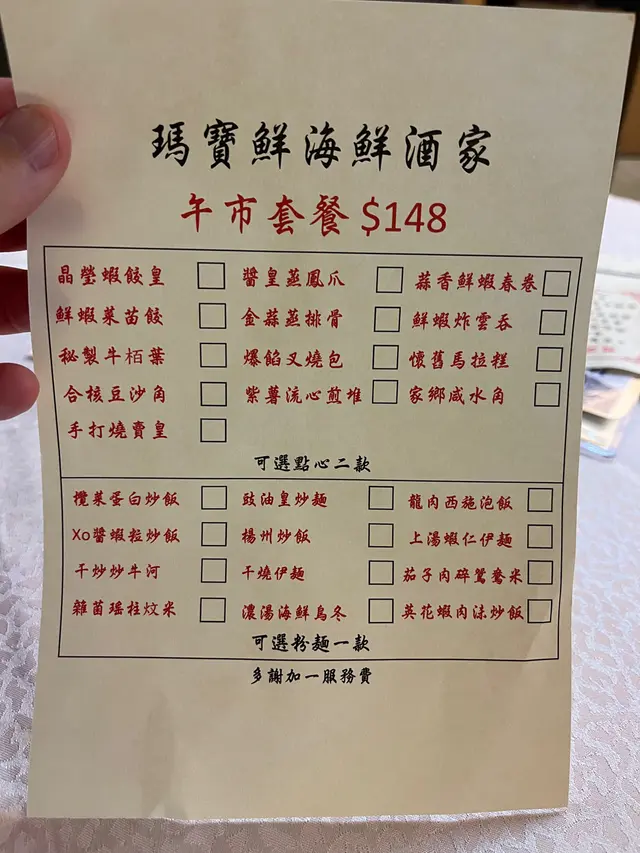 瑪寶鮮海鮮酒家
午市套餐 $148
晶瑩蝦餃皇 醬皇蒸鳳爪 蒜香鮮蝦春卷
鮮蝦菜苗餃 金蒜蒸排骨 鮮蝦炸雲吞
秘製牛栢葉 爆餡叉燒包 懷舊馬拉糕
合核豆沙角 紫薯流心煎堆 家鄉咸水角
手打燒賣皇
可選點心二款
欖菜蛋白炒飯 豉油皇炒麵 龍肉西施泡飯
Xo醬蝦粒炒飯 揚州炒飯 上湯蝦仁伊麵
干炒炒牛河 干燒伊麵 茄子肉碎鴛鴦米
雜菌瑤柱炆米 濃湯海鮮烏冬 英花蝦肉沫炒飯
可選粉麵一款
多謝加一服務費